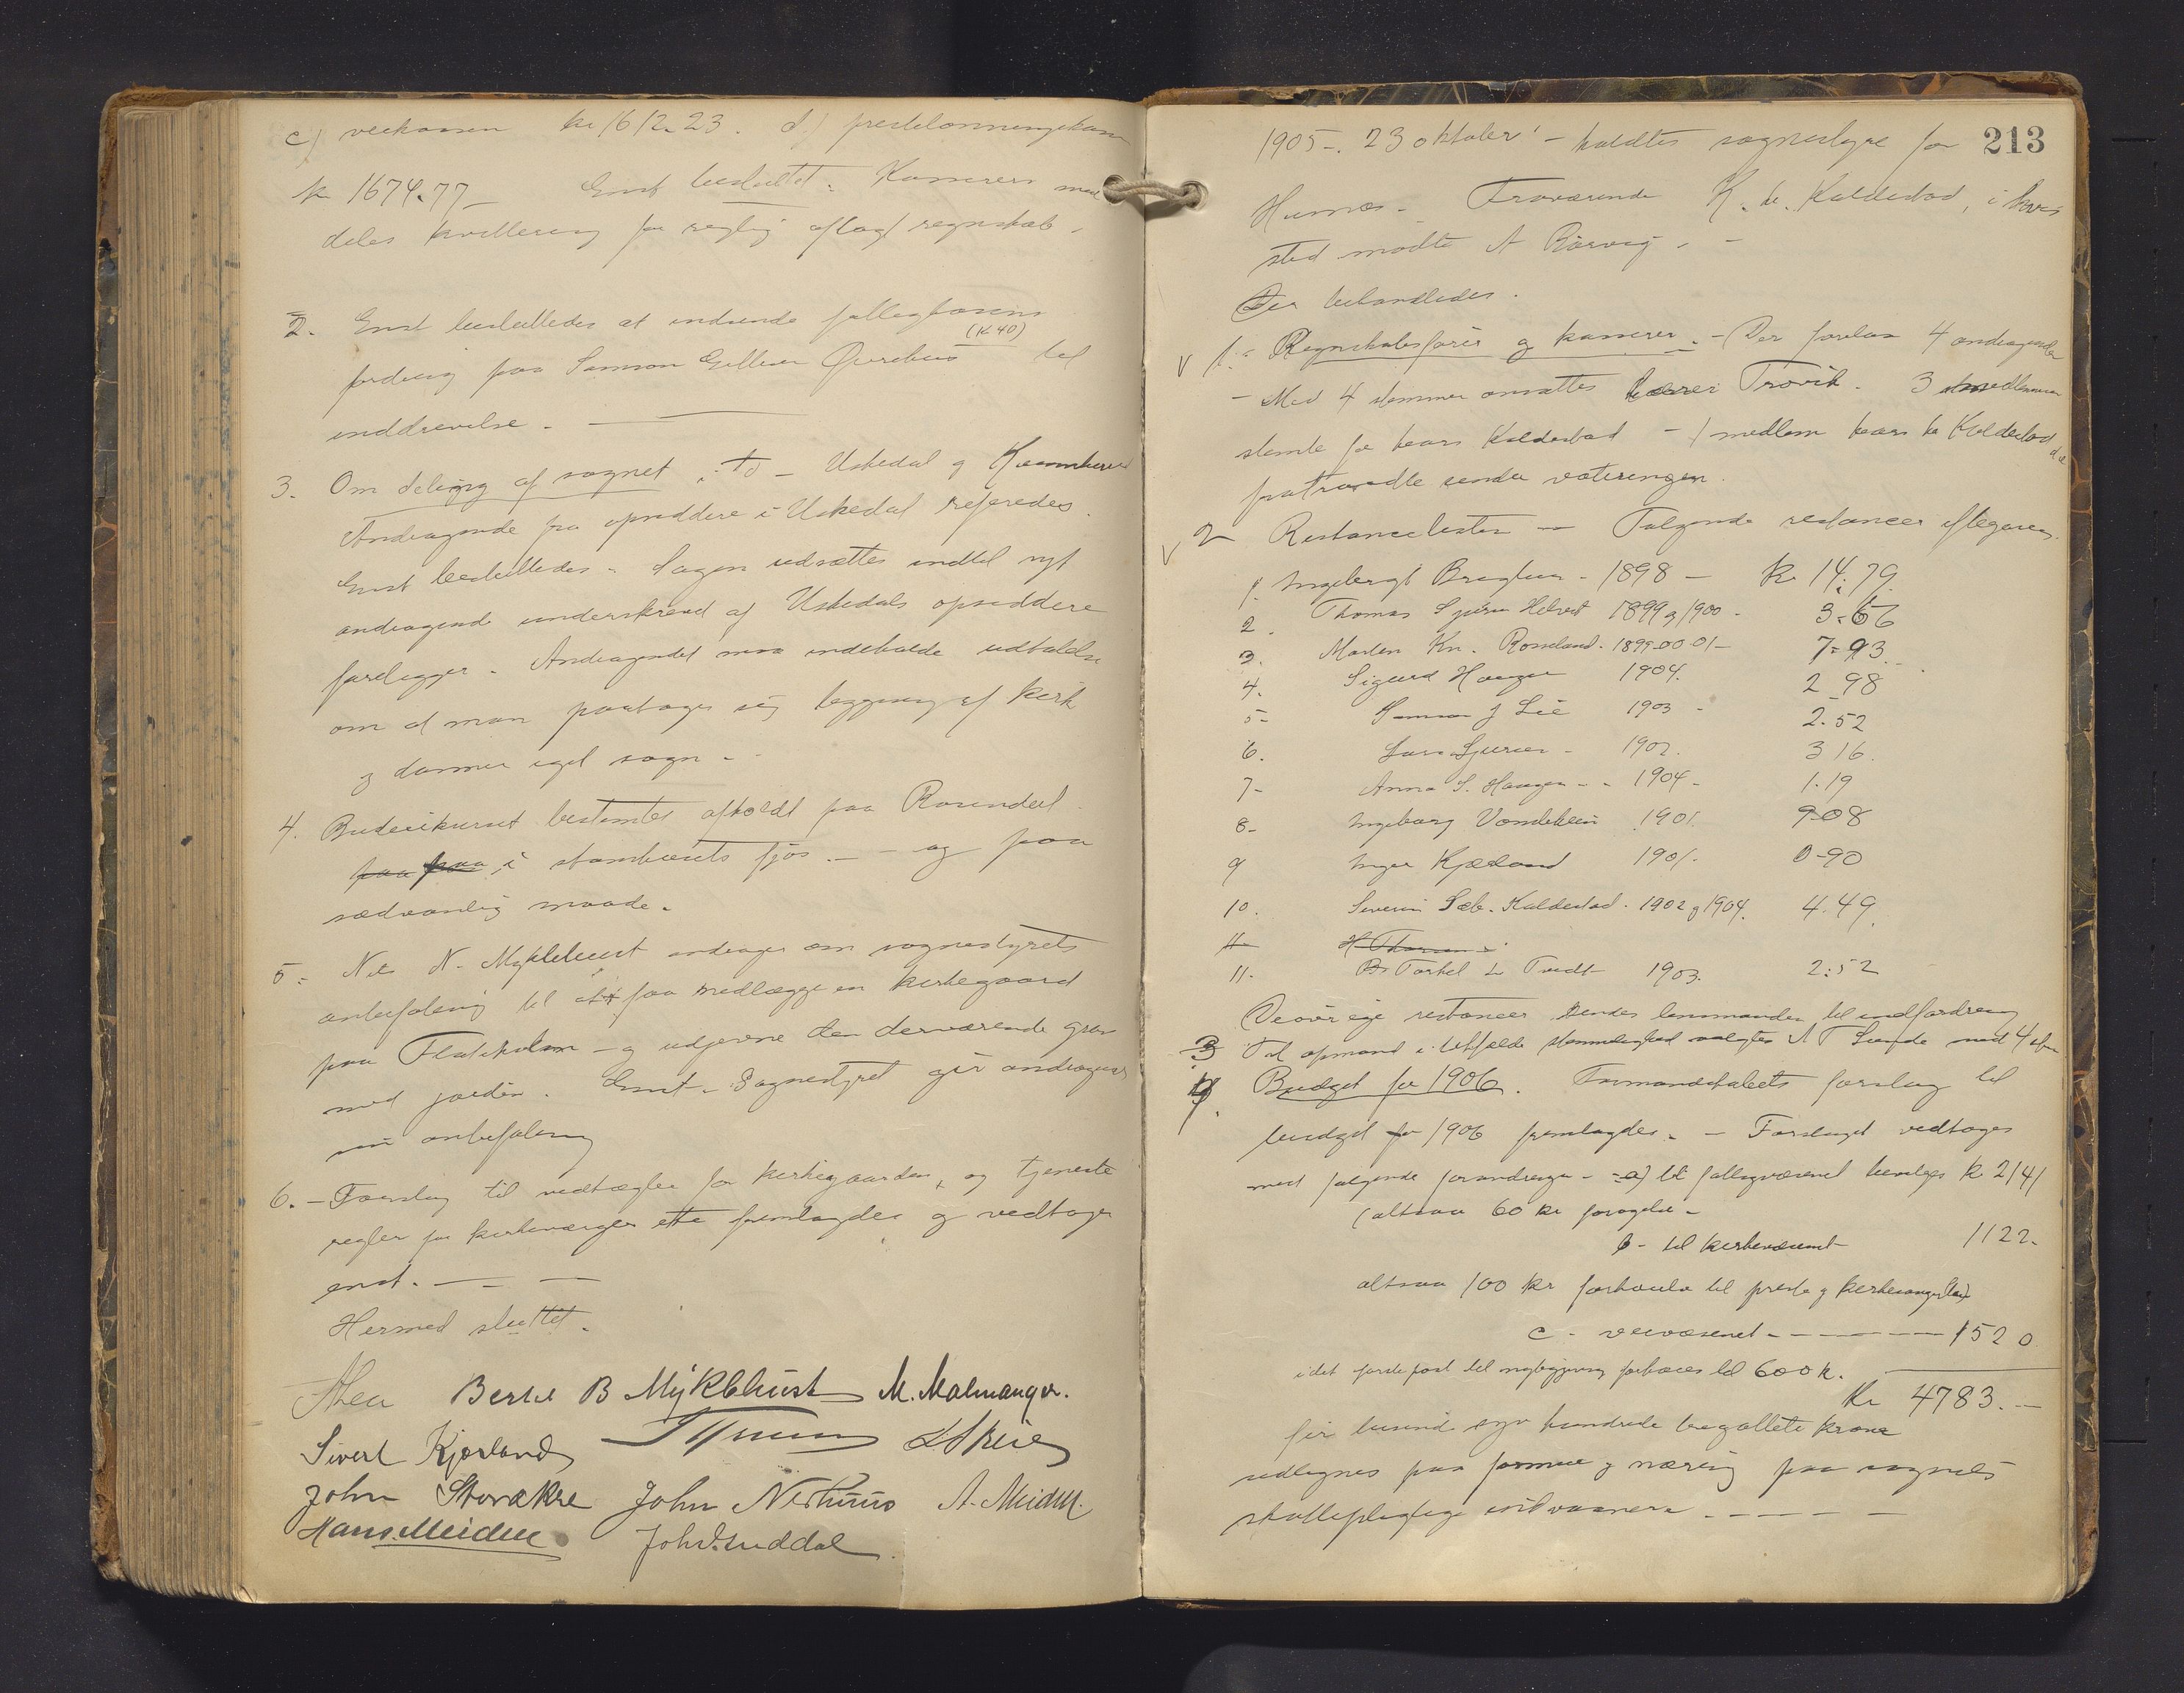 c) veikassen kr 1612.23. d.) prestelønningskass
kr 1674.77 – Enst besluttet. Kæmneren med
deles kvittering for rigtig aflagt regnskab.
2. Enst besluttedes at indsende fattigkassens
(kr 40)
fordring paa Samson til
inddrivelse. —
3. Om deling af sognet i to – Uskedal og
Andragende fra opsiddere i Uskedal refereredes.
Enst besluttedes. Sagen udsættes indtil nyt
andragende underskrevet af Uskedals opsiddere
foreligger. Andragendet maa indeholde udtalelse
om at man paatager sig bygning af kirk
og danner eget sogn –
4. Budeiekurset bestemtes afholdt paa Rosendal
paa i fjøs. — og paa
sædvanlig maade.
5. Nils N. Myklebust andrager om sognestyrets
anbefaling til at faa nedlægge en kirkegaard
paa – og udjevne den derværende grav
med jorden. Enst. Sognestyret gir andragend
sin anbefaling
6. – Forslag til vedtægter for kirkegaarden, og tjeneste
regler for kirkeværger fremlagdes og vedtoges
enst. — —
Hermed sluttet.
Bertel B Myklebust M. Malmanger.
Sivert Kjærland
John Storakre John Nerhuus A. Meidell.
Hans Meidell Joh. Guddal
213
1905 –. 23 oktober – holdtes sognestyre for
Fraværende K. L. Kaldestad, i hvis
sted mødte A Rørvig. –
Der behandledes.
V 1. Regnskabsfører og kæmner. – Der forelaa 4 andragender
– Med 4 stemmer ansattes lærer Trovik. 3 medlemmer
stemte for Lars Kaldestad – 1 medlem Lars L Kaldestad
fratraadte under voteringen.
V 2 Restancelisten — Følgende restancer eftergaves.
1. Ingebrigt – 1898 – Kr 14.79
2. Thomas 1899 og 1900 – 3.66
3. Marten Kn. Rosseland. 1899-00-01 – 7-93
4. Sigurd Haugen 1904. 2 98
5 – Samson J Lie 1903 – 2.52
6. Lars Sjursen – 1902. 3 16.
7 – Anna S. Haugen – 1904 – 1.19
8 – Ingeborg 1901. 9-08
9 Inger Kjærland 1901. 0-90
10. Severin Sæb. Kaldestad. 1902 og 1904. 4.49
11
11. Torkel L Tvedt 1903. 2:52
De øvrige restancer sendes lensmanden til indfordring
3 Til opmand i tilfælde stemmelighed valgtes A T med 4 st
4. Budget for 1906. Formandskabets forslag til
budget for 1906 fremlagdes. – Forslaget vedtoges
med følgende forandringer – a) til fattigvæsenet bevilges kr 2141
(altsaa 60 kr forøgelse –
b – til kirkevæsenet 1122.
altsaa 100 kr til prest og kirkesanger
c – veivæsenet – – – – – 1520
idet første post til nybygning forhøies til 600 k.
Kr 4783. –
fir tusind syv hundrede treogotteti krone
udlignes paa formue og næring paa sognets
skattepligtige indvaanere – – – –